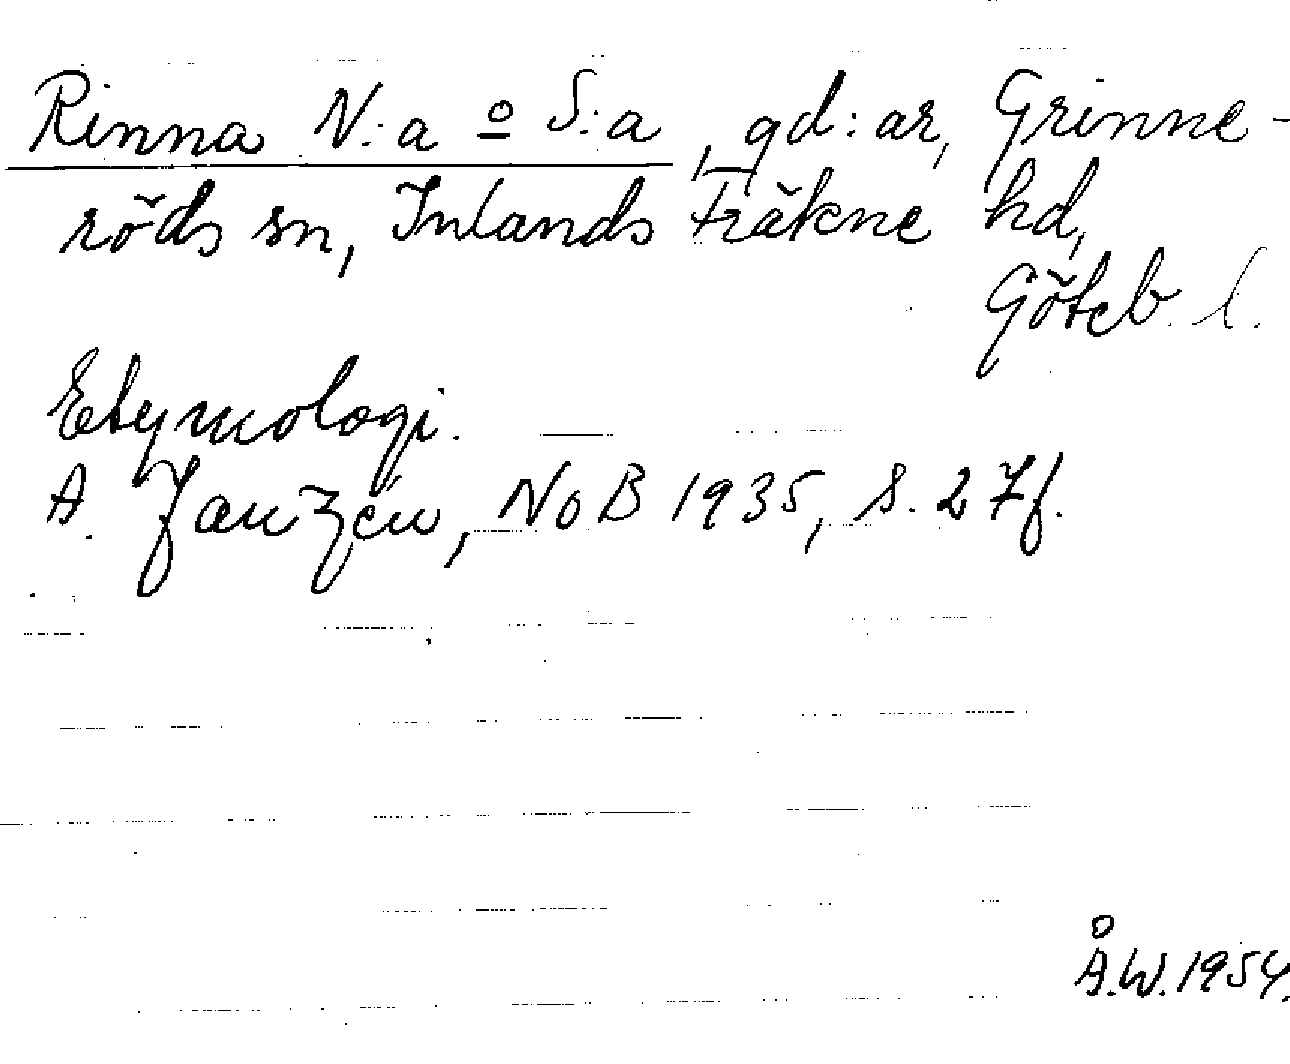 Rinna N:a o S:a, gd:ar, Grinne-
röds sn, Inlands Fräkne hd,
Göteb. l.
Etymologi.
A. Janzén, NoB 1935, s. 27f.
Å.W. 1954.